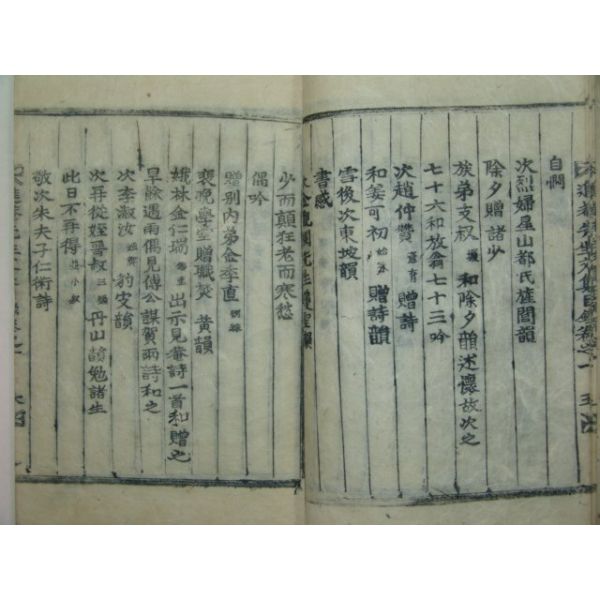 自悯
次烈婦星山都氏旌閭韻
除夕贈諸少
族弟支叔 和除夕韻述懷故次之
七十六和放翁七十三吟
次趙仲贊 贈詩
和姜可初 贈詩韻
雪後次東坡韻
書感
少而顛狂老而寒愁
偶吟
贈別内弟金季直
挽學室贈職焚黃韻
娥林金仁瑞 出示見菴詩一首和贈之
旱餘遇雨偶見傅公謀賀雨詩和之
次李淑汝 豹文韻
次再從姪晋叔 丹山韻勉諸生
此日不再得
敬次朱夫子仁術詩